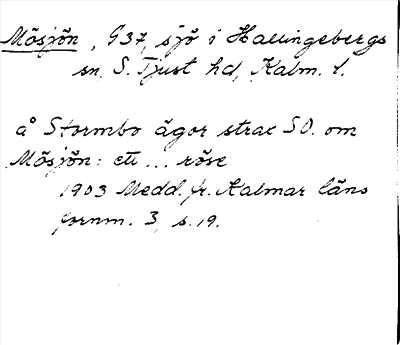 Mösjön, G37, sjö i Hallingebergs
sn, S. Tjust hd, Kalm. l.
å Stormbo ägor strax SO. om
Mösjön: ett ... röse
1903 Medd. fr. Kalmar läns
fornm. 3, s. 19.